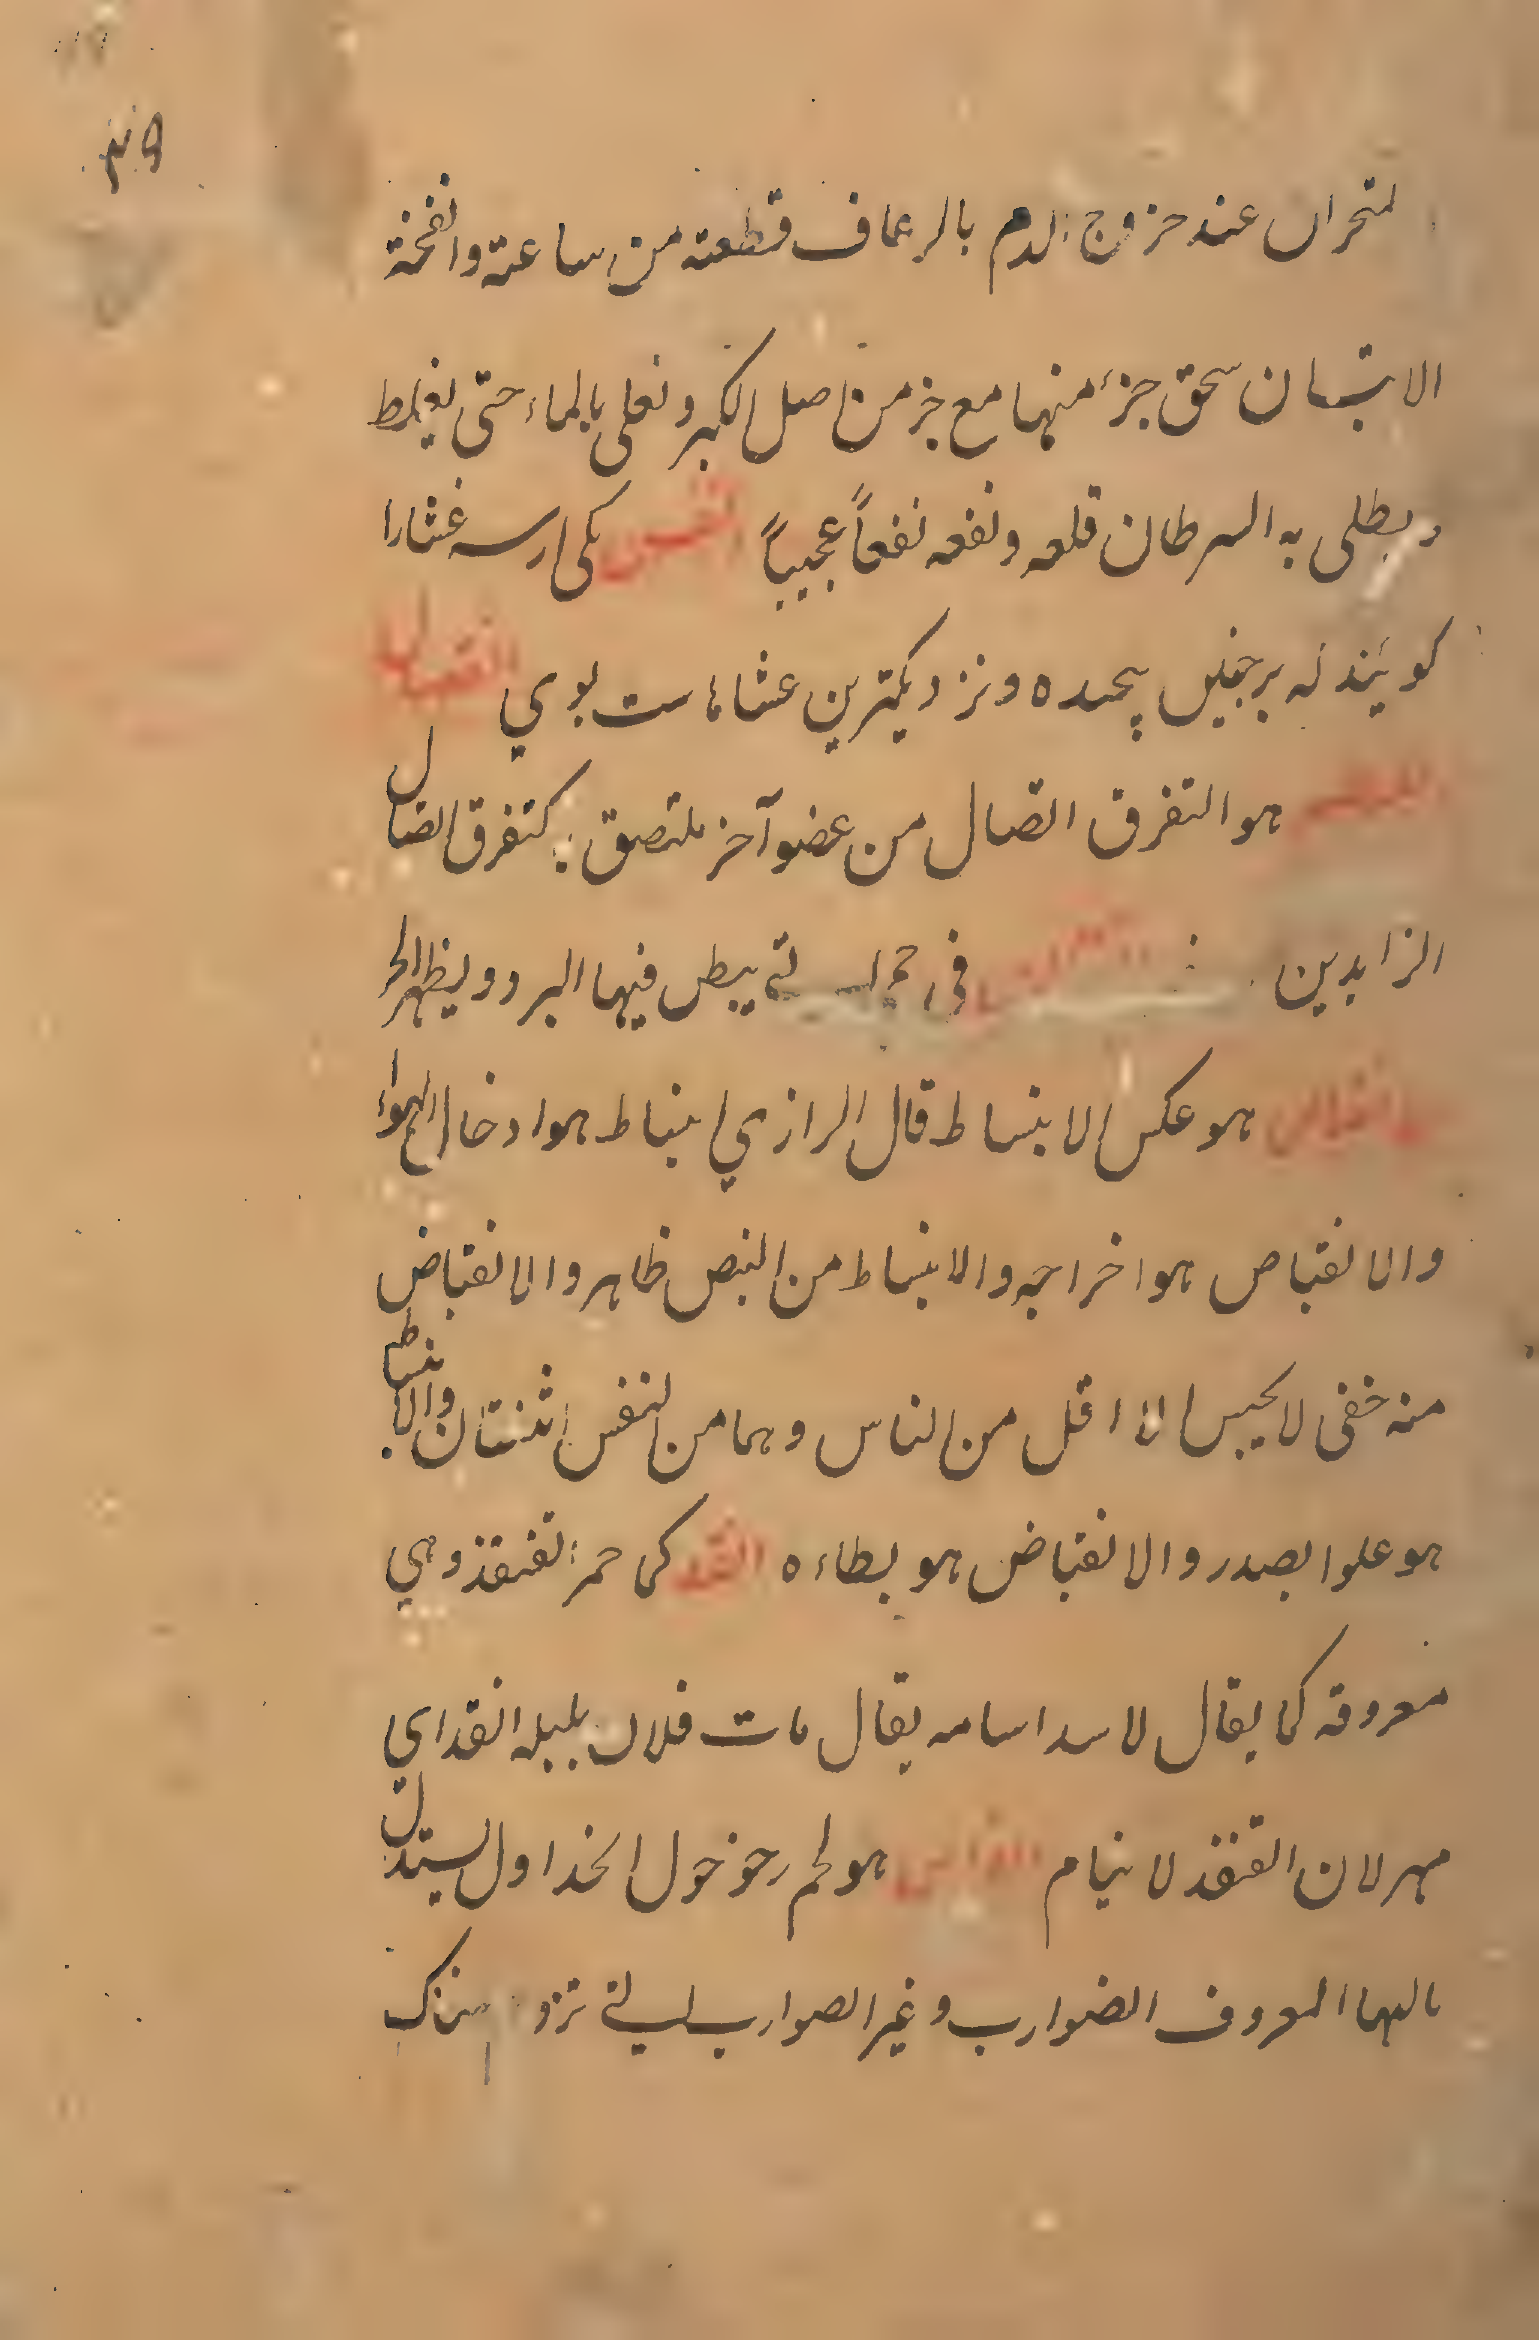 لتحران عند خروج الدم بالرعاف قطعته من ساعته وانفخة
الانسان سحق جزء منها مع جز من اصل الكبر ونعلى بالماء حتى يغلط
ويطلى به السرطان قلعه ونفعه نفعاً عجيباً يكى ارسه غشارا
كويند كه برجنين پيچيده ونزديكترين عشاهاست بوي
هو التفرق اتصال من عضو آخر ملتصق كتفرق اتصال
الزايدين في حمى التي يبطن فيها البرد ويظهر الحر
هو عكس الانبساط قال الرازي انبساط هو ادخال الهواء
والانقباص هو اخراجه والانبساط من النبص ظاهر والانقباض
منه خفى لا يحبس الا اقل من الناس وهما من النفس اثنتان والانبساط
هو علو الصدر والانقباض هو بطاءه القد كما حمر القنفذ وهي
معروفه كما يقال لاسد اسامه يقال مات فلان بليله انقد اي
مهر لان القنفذ لا ينام هو لحم رخو حول الخد اول ليستدل
بالهما المعروف الضوارب وغير الصوارب التي تزو